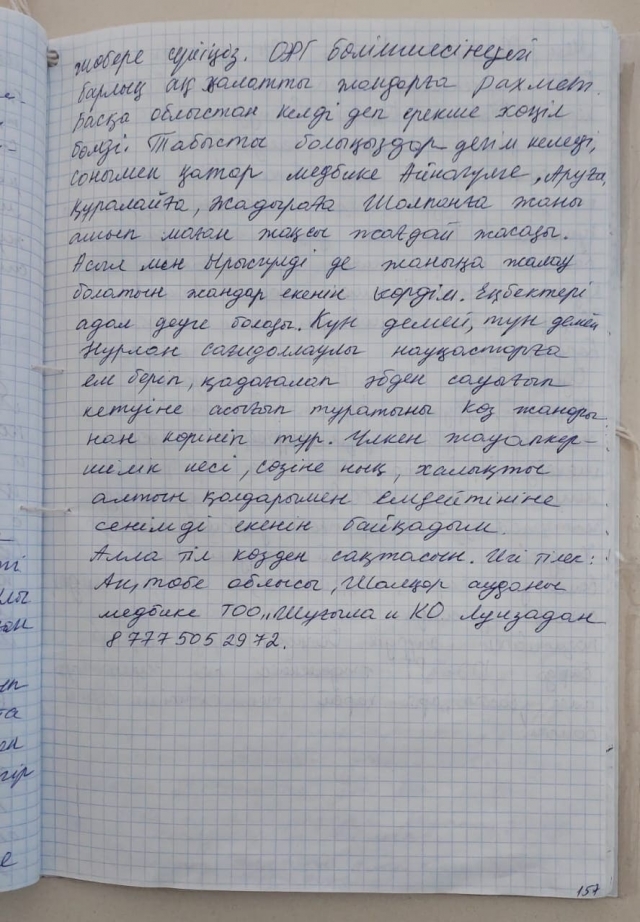 жөбере сүйіңіз. ОЖТ бөлімшесіндегі
барлық ақ халатты жандарға рахмет.
Басқа облыстан келді деп ерекше көңіл
бөлді. Табысты болыңыздар дегім келеді,
сонымен қатар медбике Айнагүлге, Аруға,
Құралайға, Жадыраға Шолпанға жаны
ашып маған жақсы жағдай жасады.
Асыл мен Ырысгүлді де жаныңа жалау
болатын жандар екенін көрдім. Еңбектері
адал деуге болады. Күн демей, түн демей
Нұрлан Сағидоллаұлы науқастарға
ем беріп, қадағалап әбден сауығып
кетуіне асығып тұратыны көз жанары
нан көрініп тұр. Үлкен жауапкер-
шілік иесі, сөзіне нық, халықты
алтын қолдарымен емдейтініне
сенімді екенін байқадым.
Алла тіл көзден сақтасын. Игі тілек:
Ақтөбе облысы, Шалқар ауданы
медбике ТОО „Шұғыла и КО Луизадан
8 777 505 29 72.
157